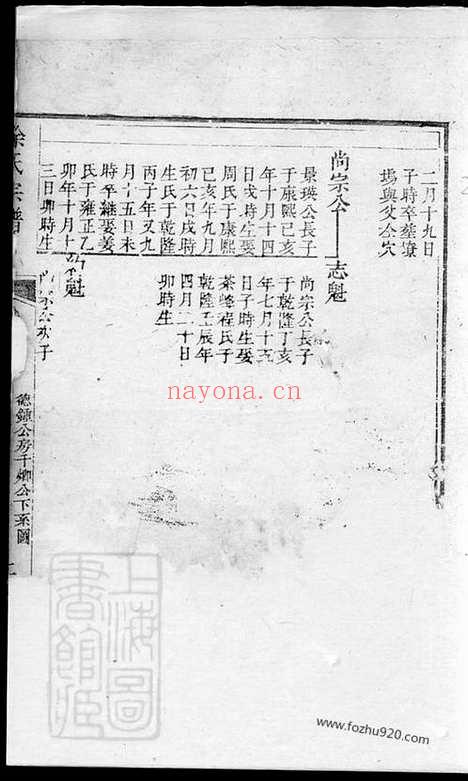 二月十九日
子時卒葬寮
塢與父仝穴
尚宗公——志魁
景瑛公長子
于康熙己亥
年十月十四
日戌時生娶
周氏于康熙
己亥年九月
初六日戌時
生氏于乾隆
丙子年又九
月十五日未
時卒繼娶姜
氏于雍正乙
卯年十月十
三日卯時生
尚宗公長子
于乾隆丁亥
年七月十
日子時生娶
茶峰程氏于
乾隆壬辰年
四月二十日
卯時生
魁
公次子
徐氏宗譜
德鍾公房千鄉公下系圖
上海圖書館藏
nayona.cn
www.fozhu920.com